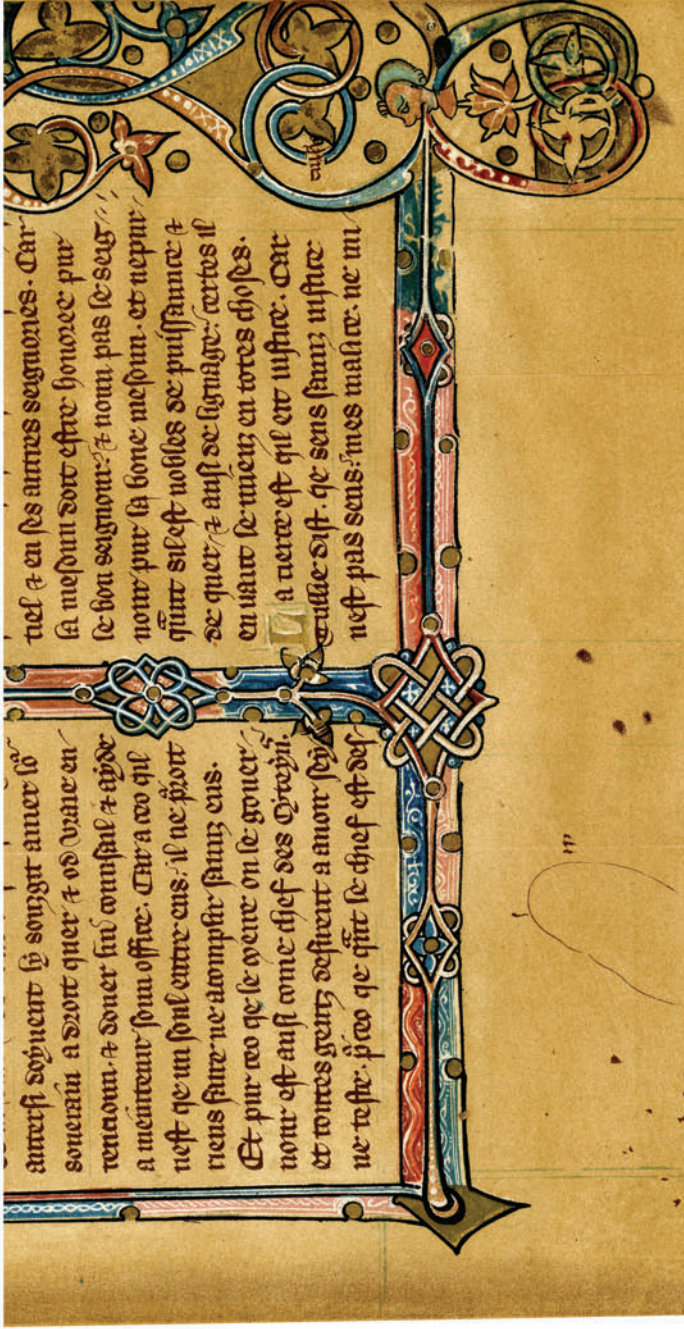 autersi doyuent ly souzgit amer lo᷑
souerain a droit quer ⁊ od vraie en
tencioun. ⁊ doner lui counsail ⁊ ayde
a meintenir soun office. Car a ceo qil
nest qe un soul entre eus. il ne poit
riens faire ne acomplir saunz eus.
Et pur ceo qe le on le gouer
nour est ausi come chef des Citeyns.
et toutes gentz desirent a auoir sey
ne teste. pceo qe qūt le chef est des
tiel ⁊ en ses autres seignories. Car
la mesoun doit estre honoree pur
le bon seignour. ⁊ noun pas le seig
nour pur la bone mesoun. et nepur
qūnt sil est nobles de puissaunce ⁊
de quer ⁊ ausi de lignage. certes il
en vaut le mieuz en totes choses.
a tierce est qil eit iustice. Car
tullie dist. qe sens saunz iustice
nest pas sens. mes malice. ne nu